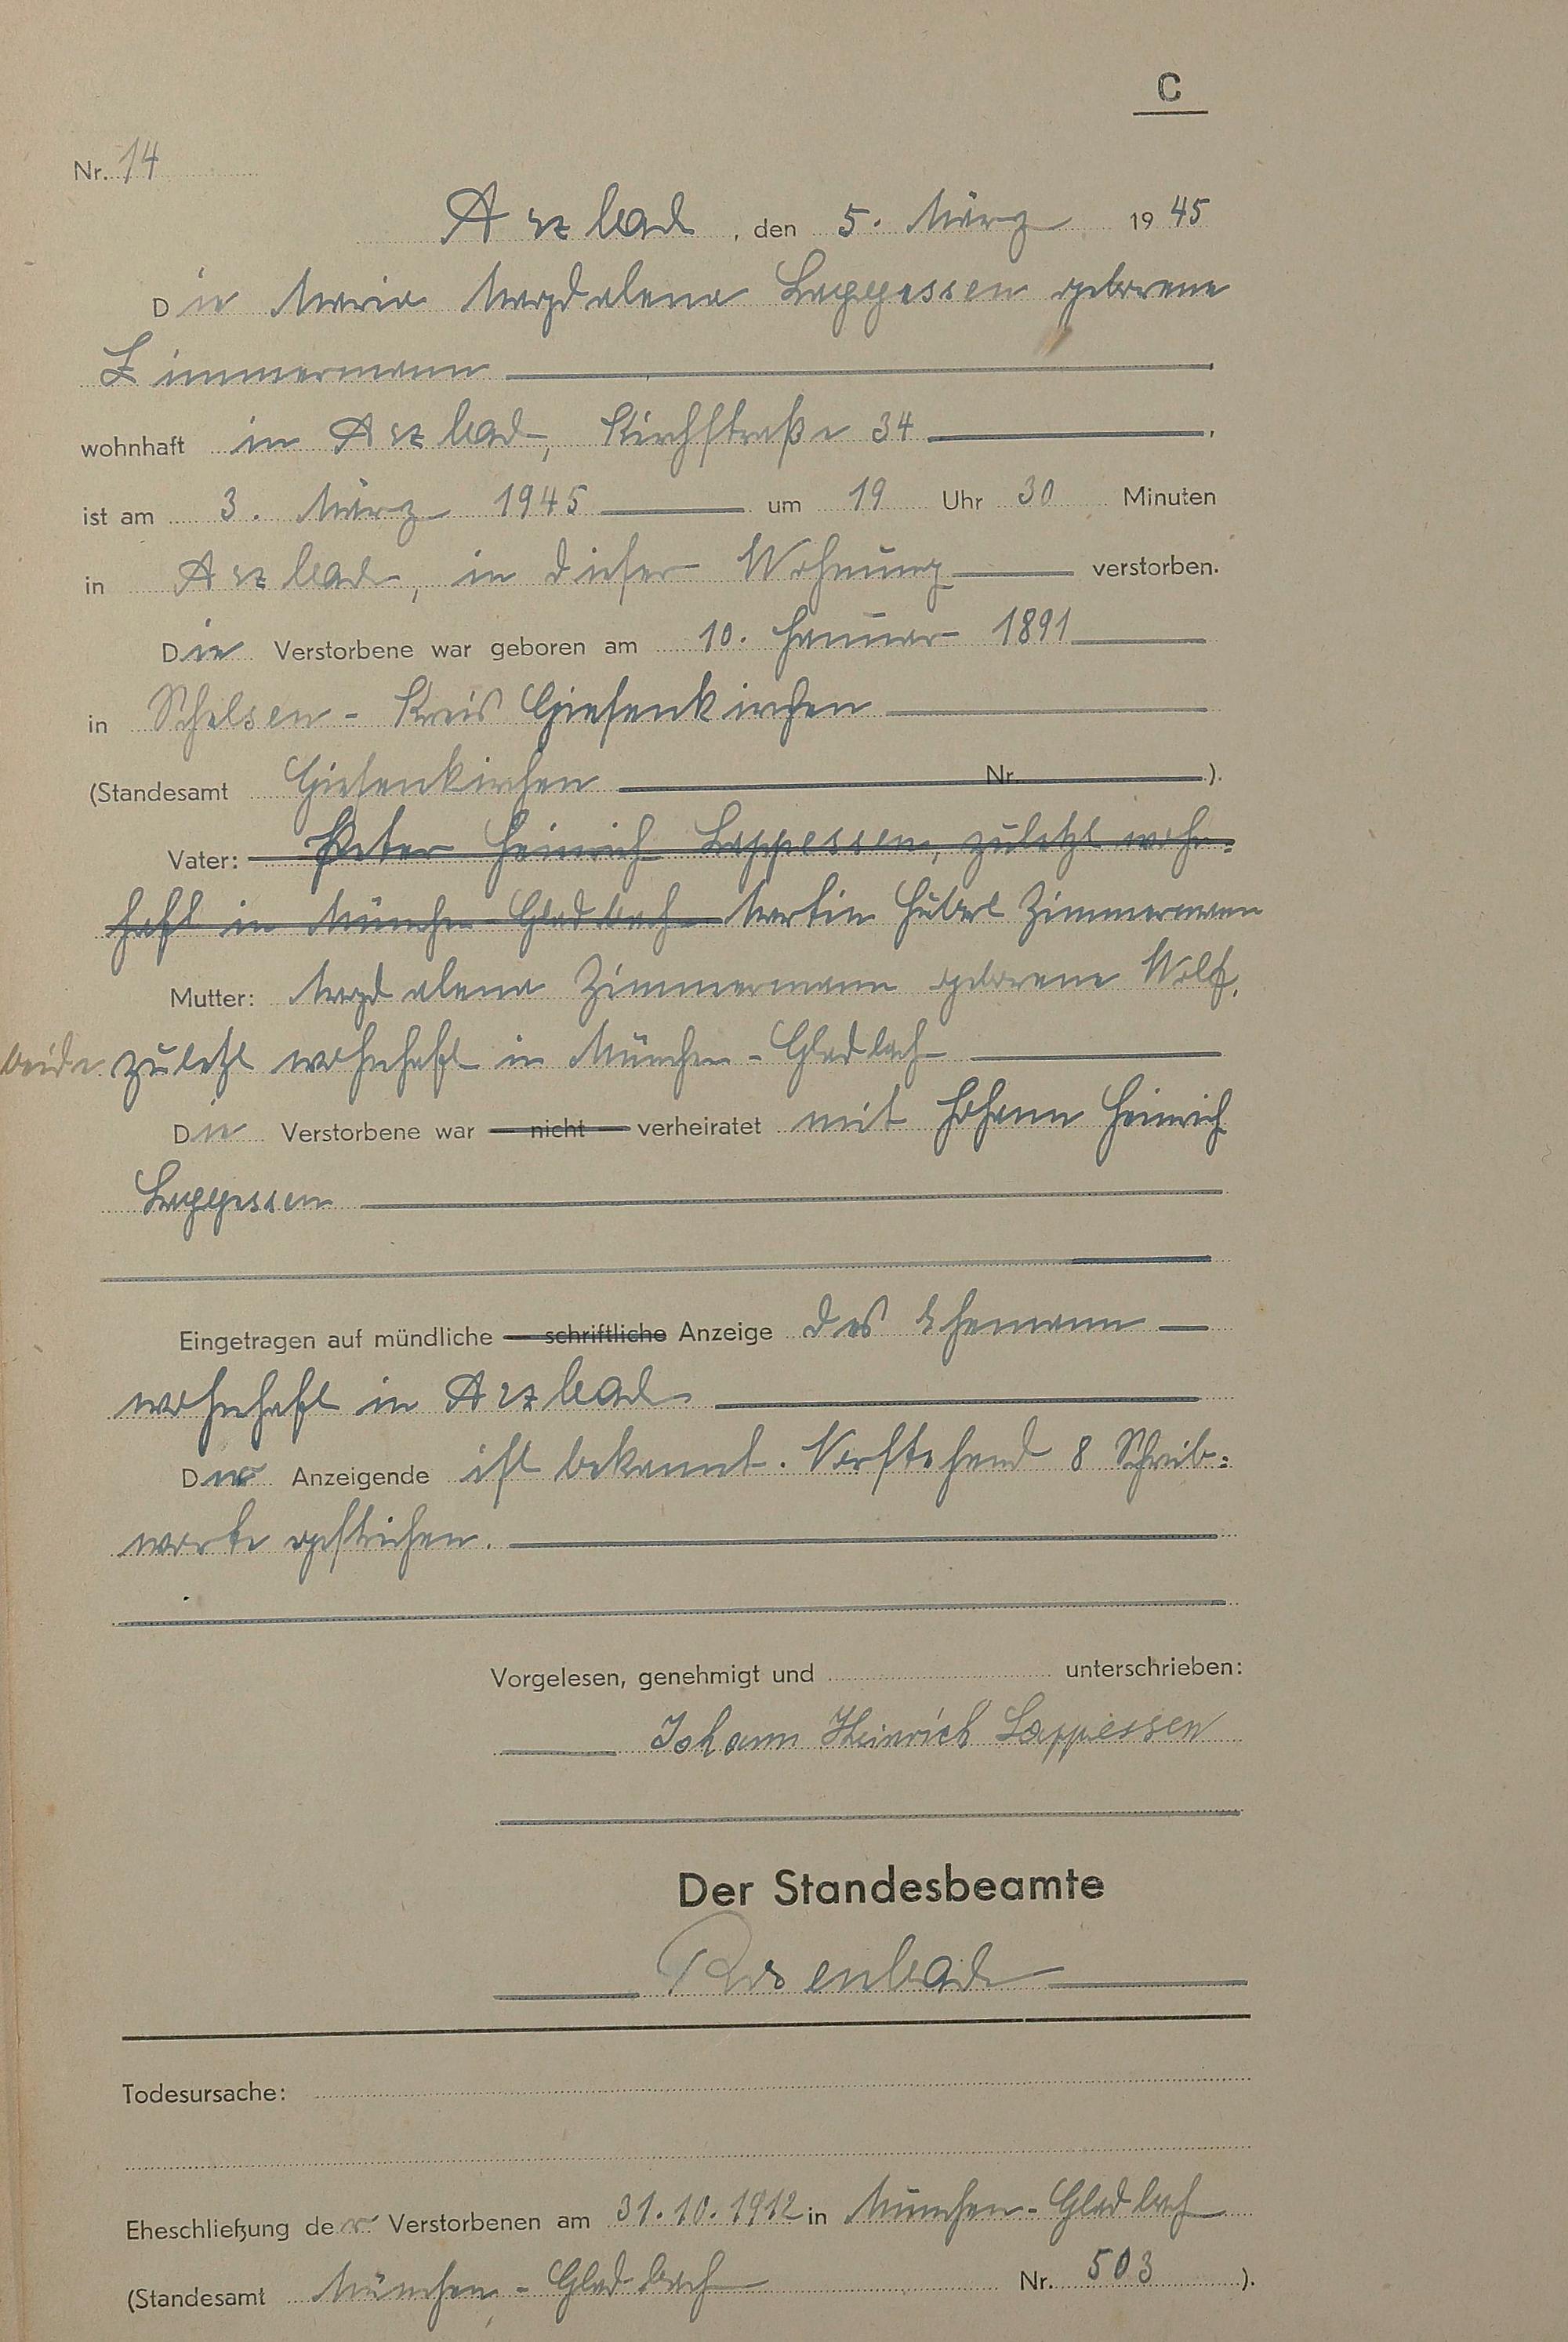 C
Nr. 14
Arzbach, den 5. März 1945
Die Maria Magdalena Lappessen geborene
Zimmermann
wohnhaft in Arzbach, Kirchstraße 34,
ist am 3. März 1945 um 19 Uhr 30 Minuten
in Arzbach, in dieser Wohnung verstorben.
Die Verstorbene war geboren am 10. Januar 1891
in Schelsen - Kreis Giesenkirchen
(Standesamt Giesenkirchen Nr. ).
Vater: Peter Heinrich Lappessen, zuletzt wohn=
haft in München-Gladbach Martin Hubert Zimmermann
Mutter: Magdalena Zimmermann geborene Wolf,
beide zuletzt wohnhaft in München-Gladbach
Die Verstorbene war nicht verheiratet mit Johann Heinrich
Lappessen
Eingetragen auf mündliche schriftliche Anzeige des Ehemann
wohnhaft in Arzbach
Der Anzeigende ist bekannt. Vorstehend 8 Schreib=
worte gestrichen.
Vorgelesen, genehmigt und unterschrieben:
Johann Heinrich Lappessen
Der Standesbeamte
Rosenbach
Todesursache:
Eheschließung der Verstorbenen am 31.10.1912 in München-Gladbach
(Standesamt München-Gladbach Nr. 503 ).